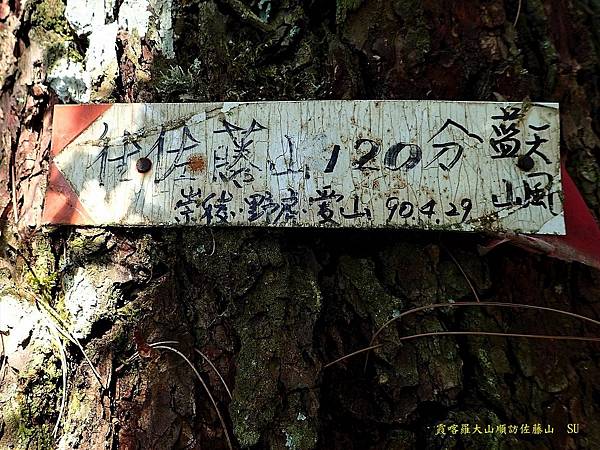 往佐藤山120分
崇稜.野烏.愛山 90.4.29
藍天
山風
霞喀羅大山順訪佐藤山 SU